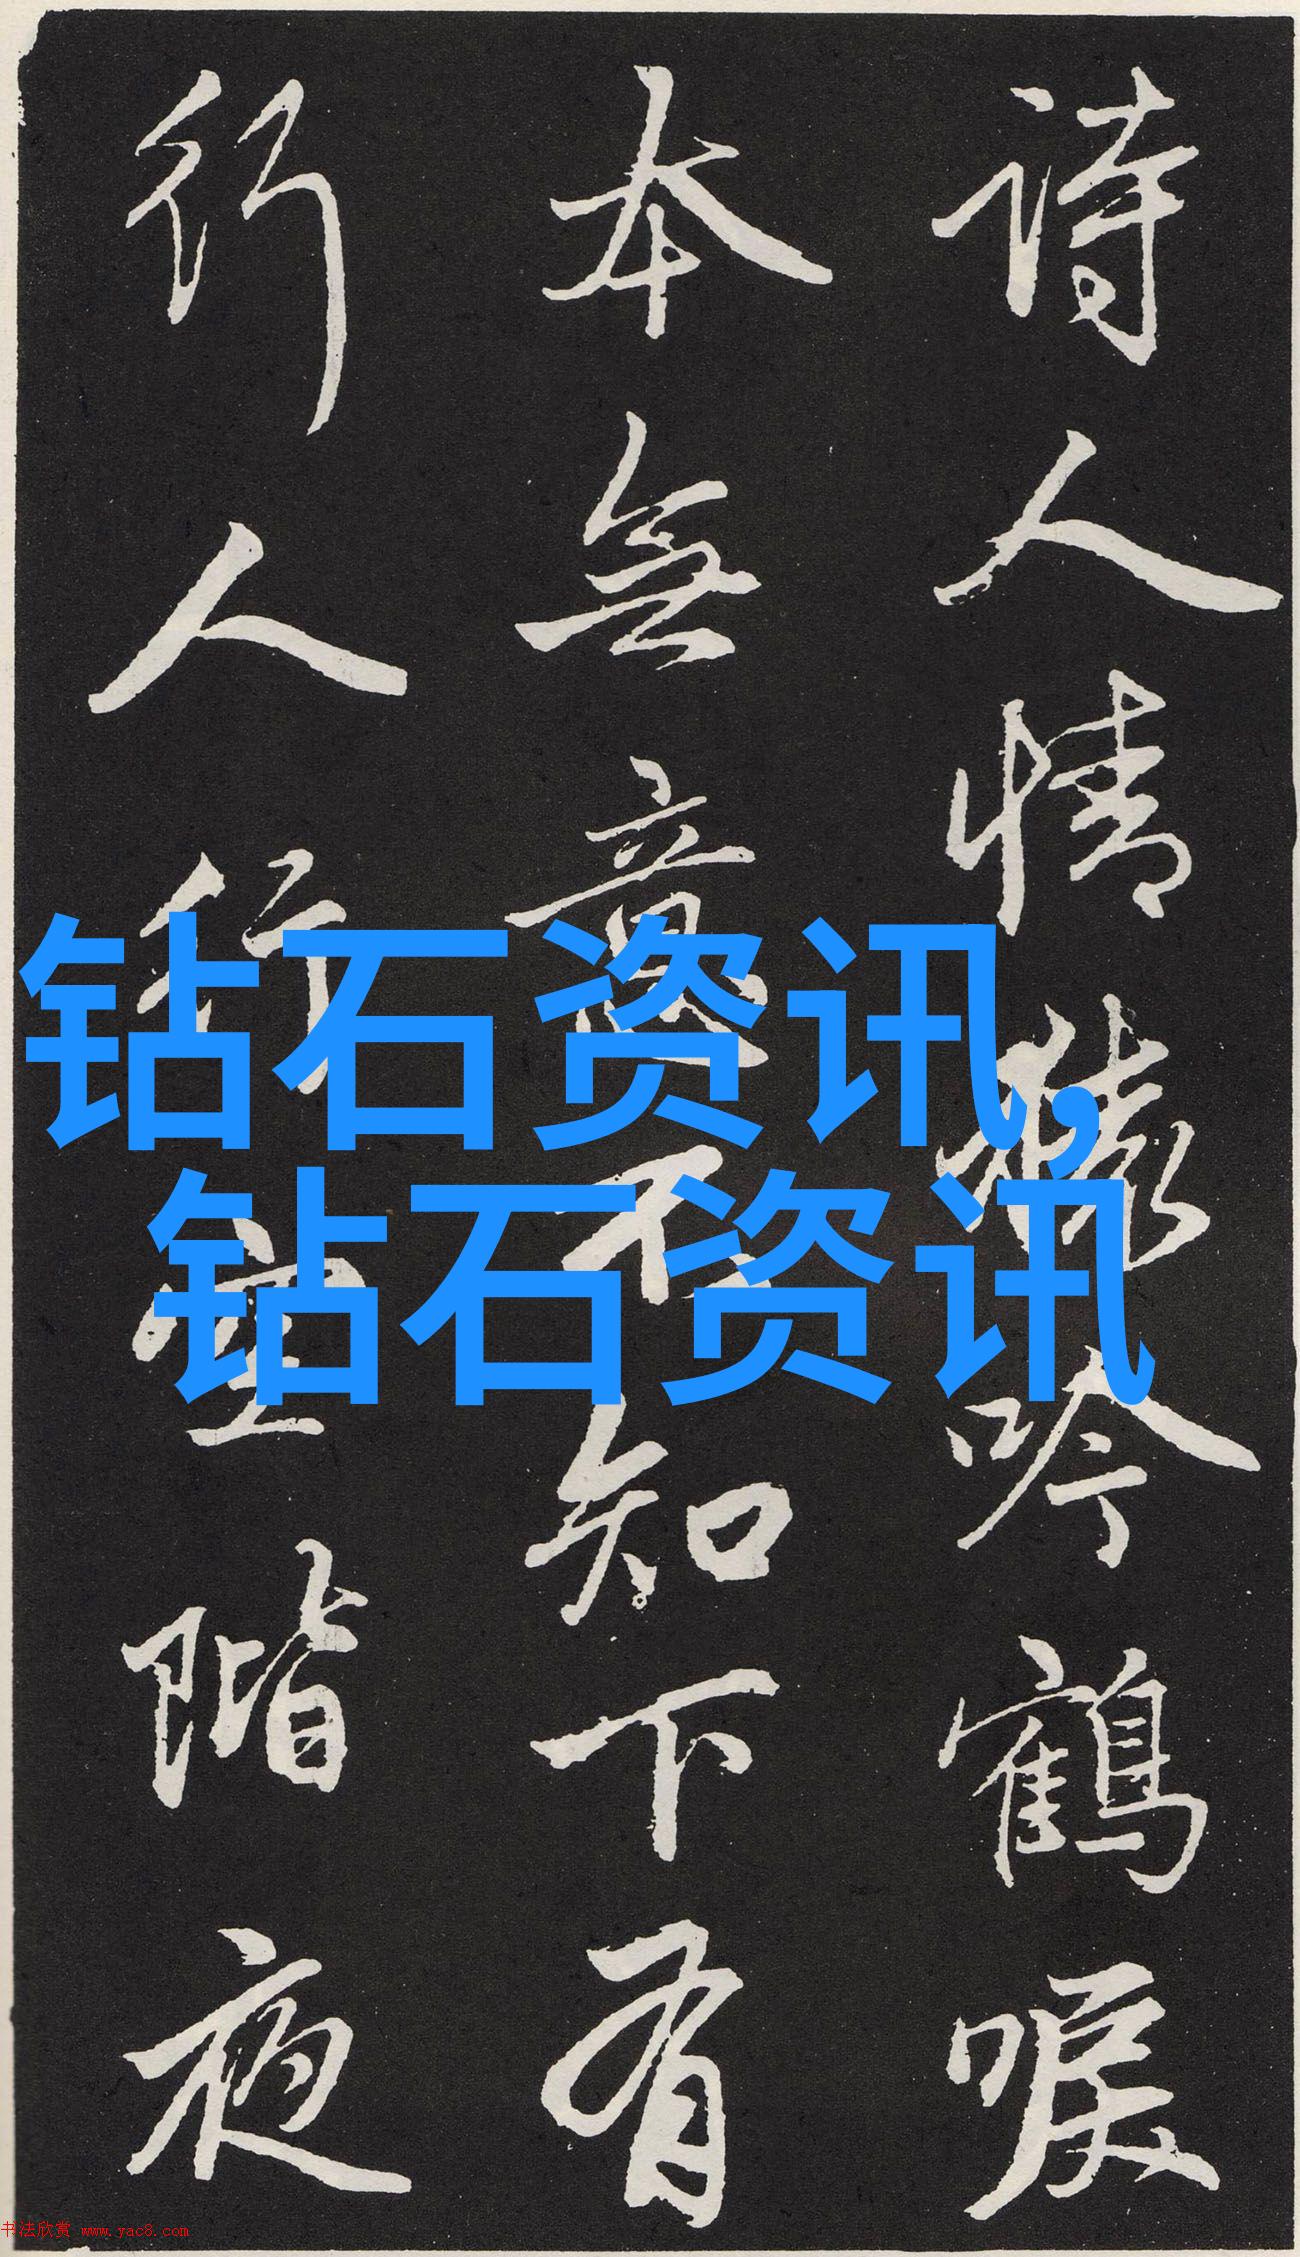 诗人情猿吟鹤唳
本无意不知下有
行人行空阶夜
钻石资讯,
钻石资讯
书法欣赏 www.yac8.com